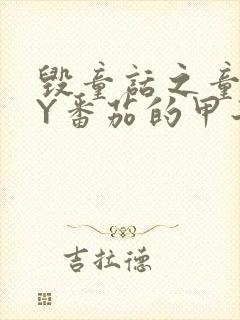 毁童话之童
Y番茄的甲
吉拉德